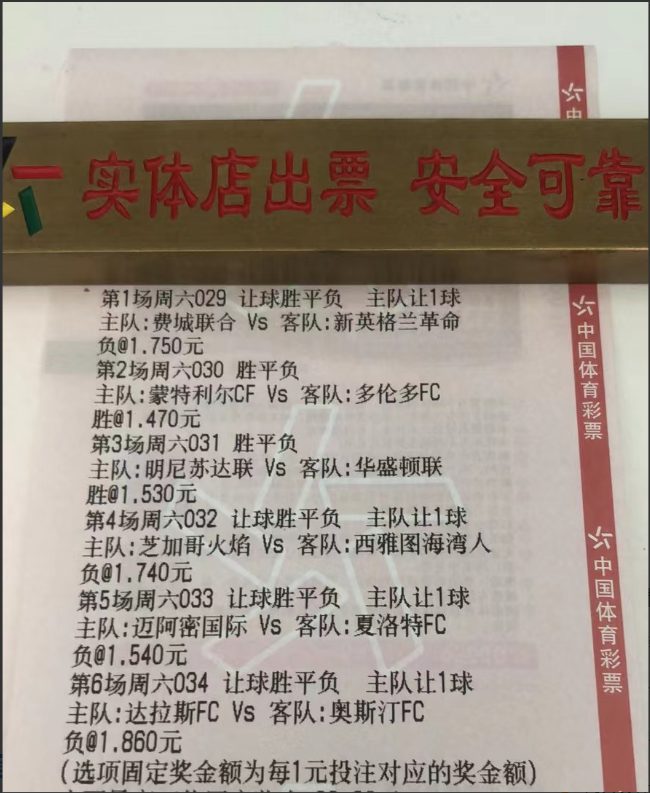 实体店出票 安全可靠
第1场周六029 让球胜平负 主队让1球
主队:费城联合 Vs 客队:新英格兰革命
负@1.750元
第2场周六030 胜平负
主队:蒙特利尔CF Vs 客队:多伦多FC
胜@1.470元
第3场周六031 胜平负
主队:明尼苏达联 Vs 客队:华盛顿联
胜@1.530元
第4场周六032 让球胜平负 主队让1球
主队:芝加哥火焰 Vs 客队:西雅图海湾人
负@1.740元
第5场周六033 让球胜平负 主队让1球
主队:迈阿密国际 Vs 客队:夏洛特FC
负@1.540元
第6场周六034 让球胜平负 主队让1球
主队:达拉斯FC Vs 客队:奥斯汀FC
负@1.860元
(选项固定奖金额为每1元投注对应的奖金额)
中
中国体育彩票
中国体育彩票